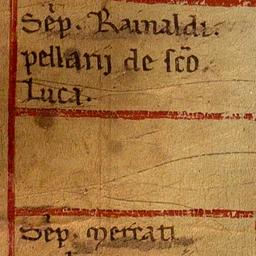 Sēp. Rainaldi.
pellanj de sc̄o
Luca.
Sēp. mercati